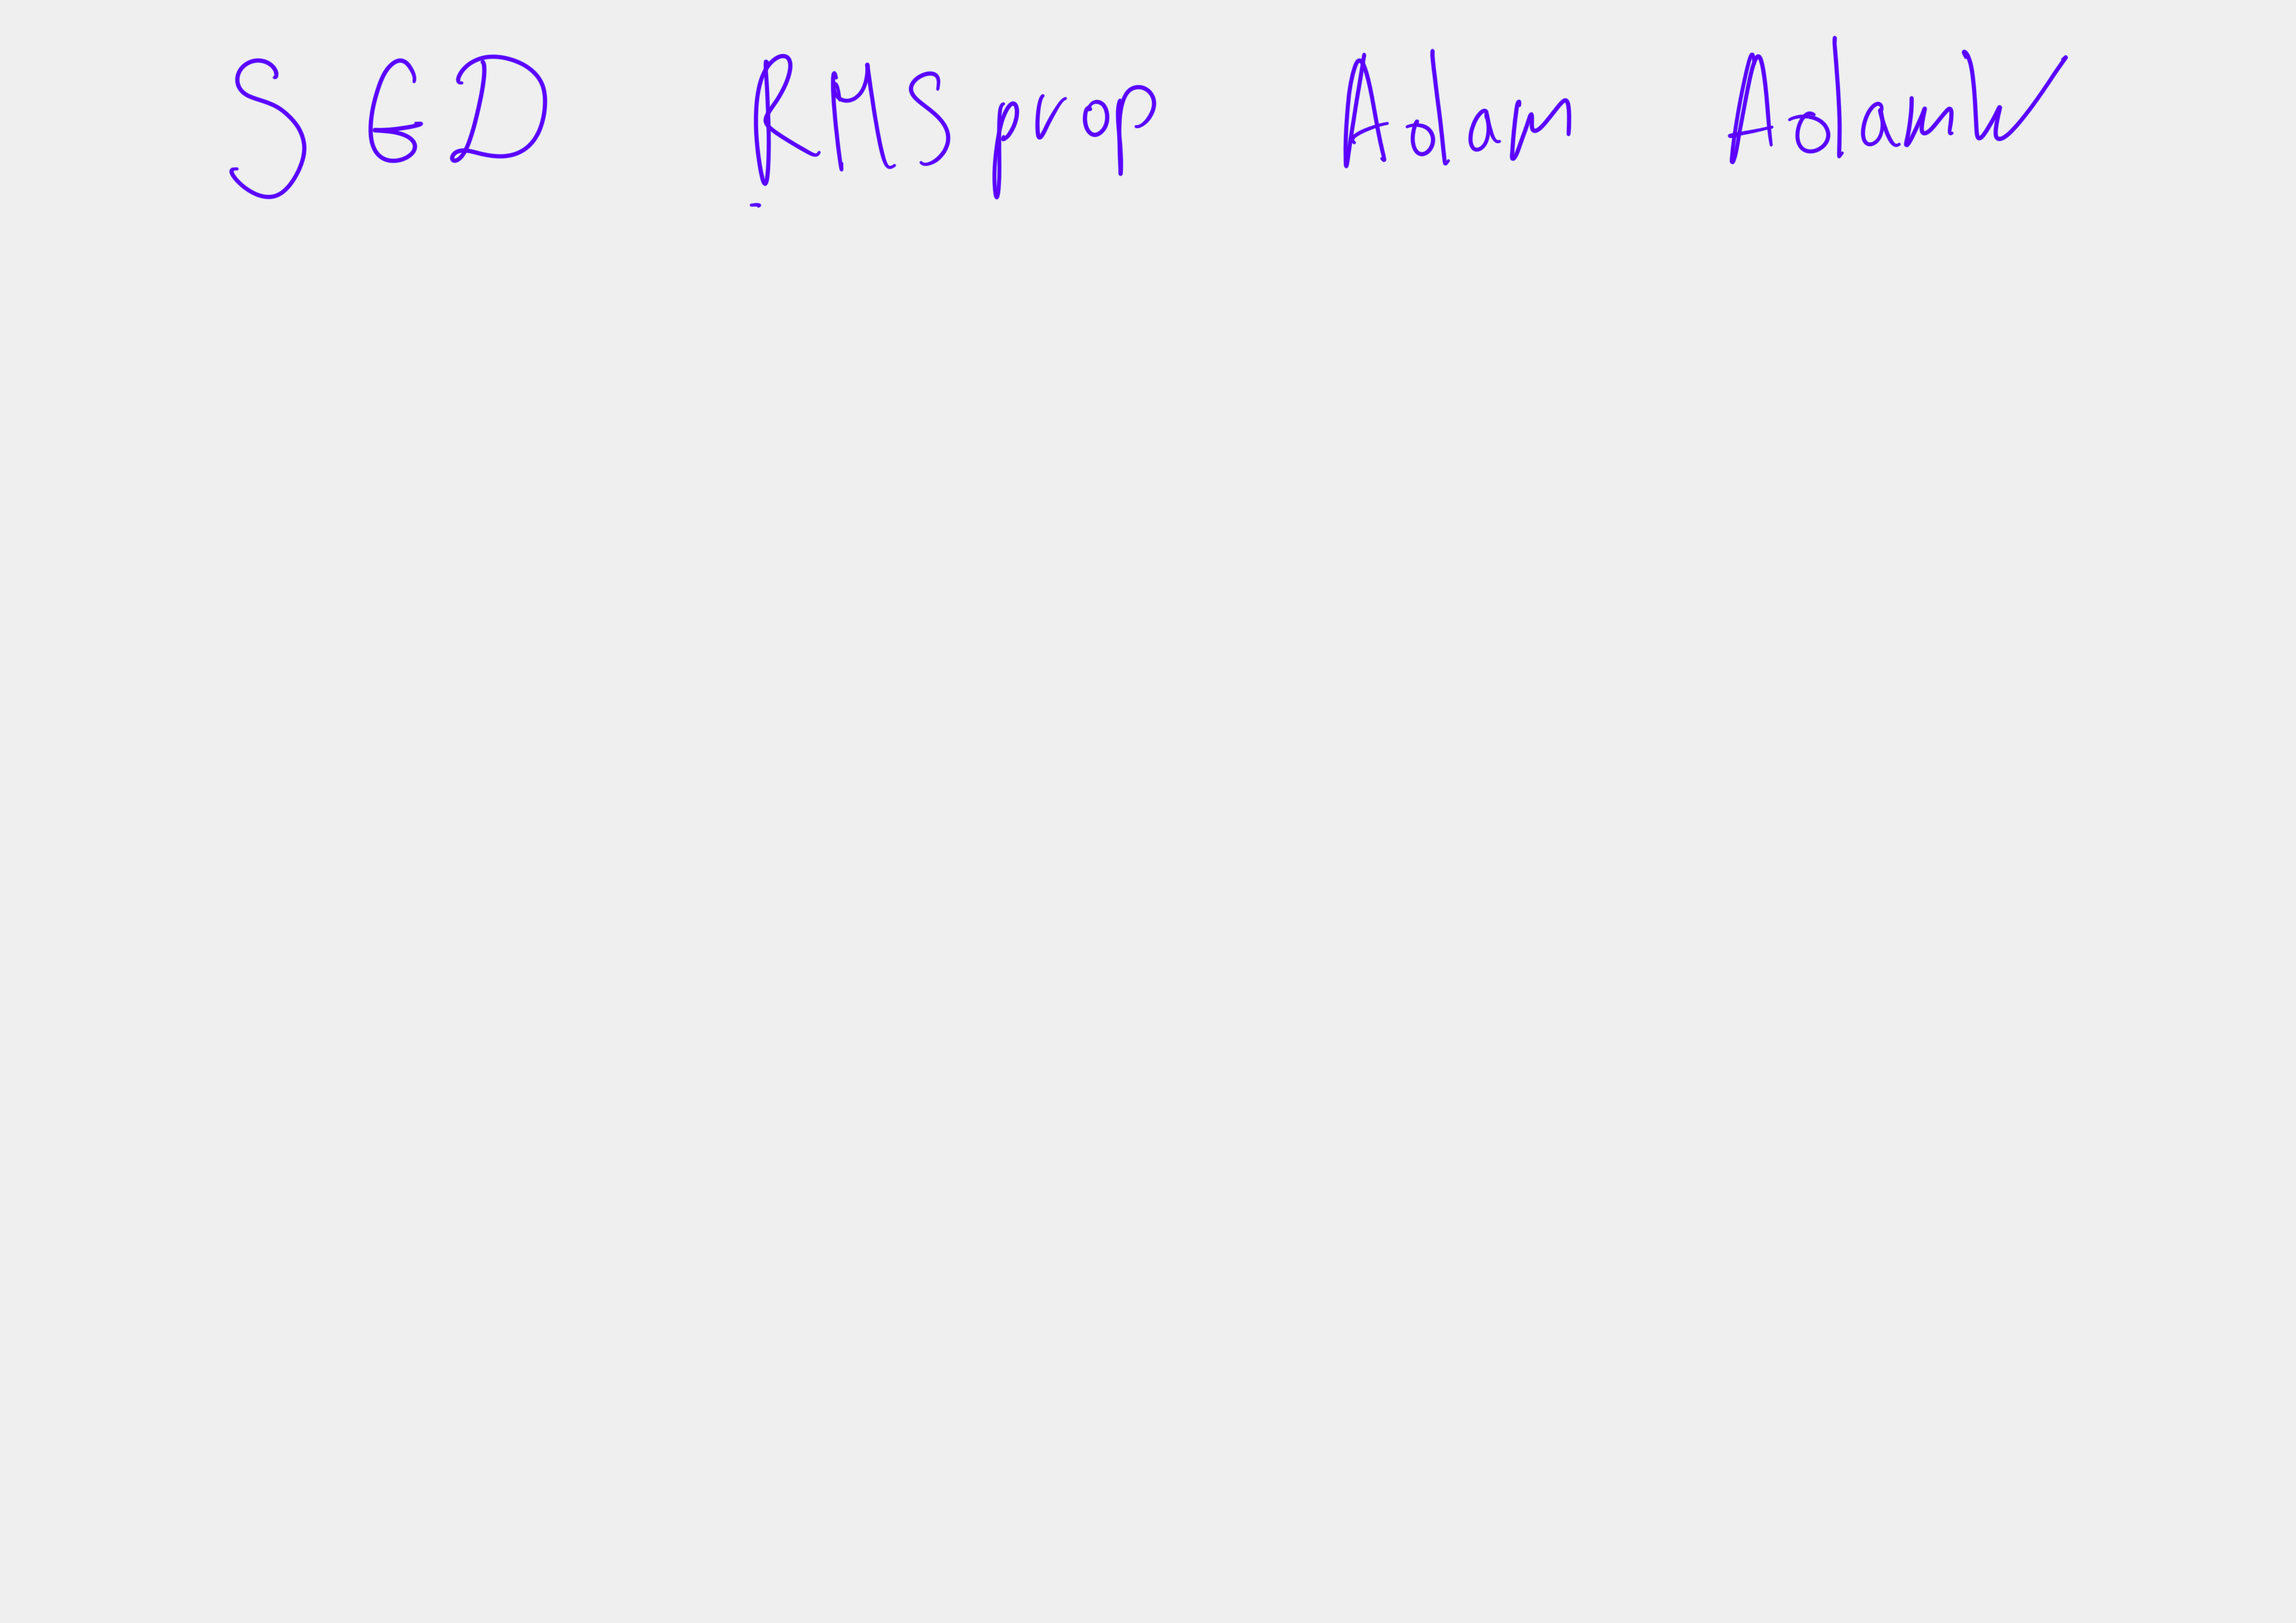 SGD RMSprop Adam AdamW